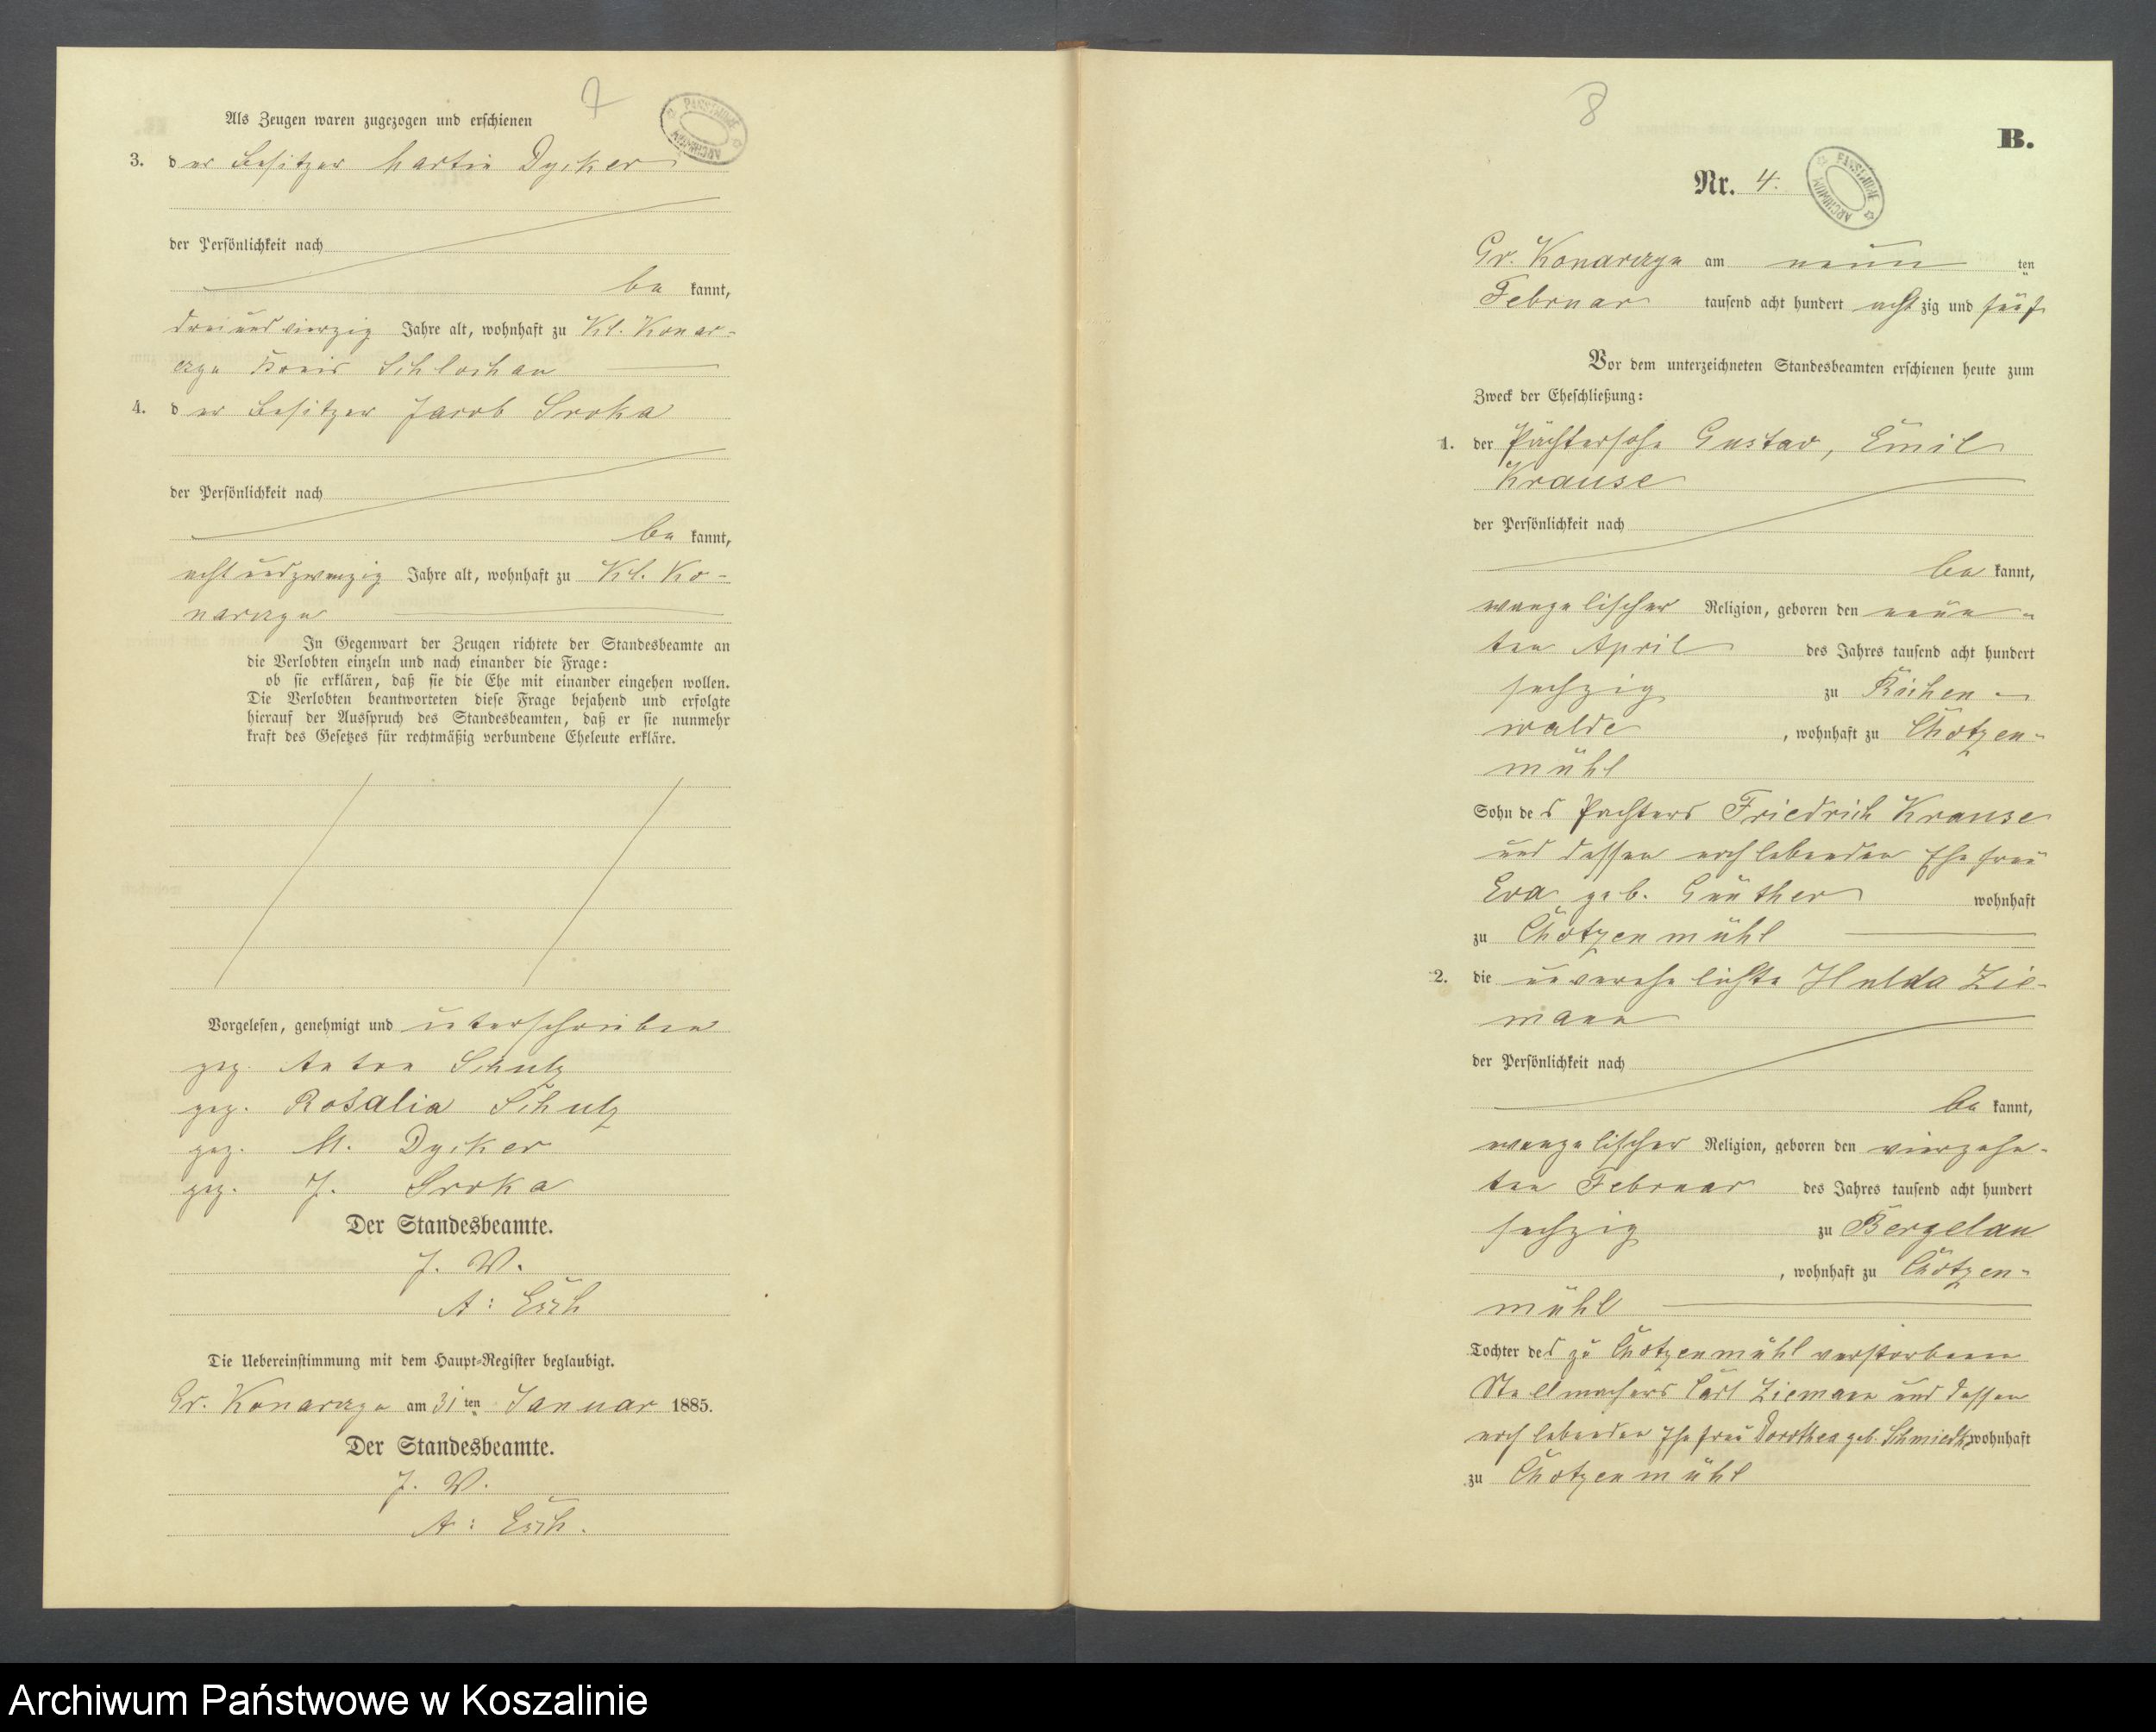 7
Als Zeugen waren zugezogen und erschienen
3. der Besitzer Martin Dycker
der Persönlichkeit nach
be kannt,
dreiundvierzig Jahre alt, wohnhaft zu Kl. Konar-
czyn Kreis Schlochau
4. der Besitzer Jacob Sroka
der Persönlichkeit nach
be kannt,
achtundzwanzig Jahre alt, wohnhaft zu Kl. Ko-
narczyn
In Gegenwart der Zeugen richtete der Standesbeamte an
die Verlobten einzeln und nach einander die Frage:
ob sie erklären, daß sie die Ehe mit einander eingehen wollen.
Die Verlobten beantworteten diese Frage bejahend und erfolgte
hierauf der Ausspruch des Standesbeamten, daß er sie nunmehr
kraft des Gesetzes für rechtmäßig verbundene Eheleute erkläre.
Vorgelesen, genehmigt und unterschrieben
gez. Anton Schulz
gez. Rosalia Schulz
gez. M. Dycker
gez. J. Sroka
Der Standesbeamte.
J. V.
A:
Die Uebereinstimmung mit dem Haupt-Register beglaubigt.
Gr. Konarczyn am 31ten Januar 1885.
Der Standesbeamte.
J. V.
A:
8
B.
Nr. 4.
Gr. Konarczyn am neun ten
Februar tausend acht hundert acht zig und fünf
Vor dem unterzeichneten Standesbeamten erschienen heute zum
Zweck der Eheschließung:
1. der Pächtersohn Gustav, Emil
Krause
der Persönlichkeit nach
be kannt,
evangelischer Religion, geboren den neun-
ten April des Jahres tausend acht hundert
sechzig zu
walde, wohnhaft zu Chotzen-
mühl
Sohn des Pächters Friedrich Krause
und dessen noch lebenden Ehefrau
Eva geb. Günther wohnhaft
zu Chotzenmühl
2. die unverehelichte Hulda Zie-
mann
der Persönlichkeit nach
be kannt,
evangelischer Religion, geboren den vierzehn-
ten Februar des Jahres tausend acht hundert
sechzig zu Bergelau
, wohnhaft zu Chotzen-
mühl
Tochter des zu Chotzenmühl verstorbenen
Stellmachers Carl Ziemann und dessen
noch lebenden Ehefrau Dorothea geb. wohnhaft
zu Chotzenmühl
Archiwum Państwowe w Koszalinie